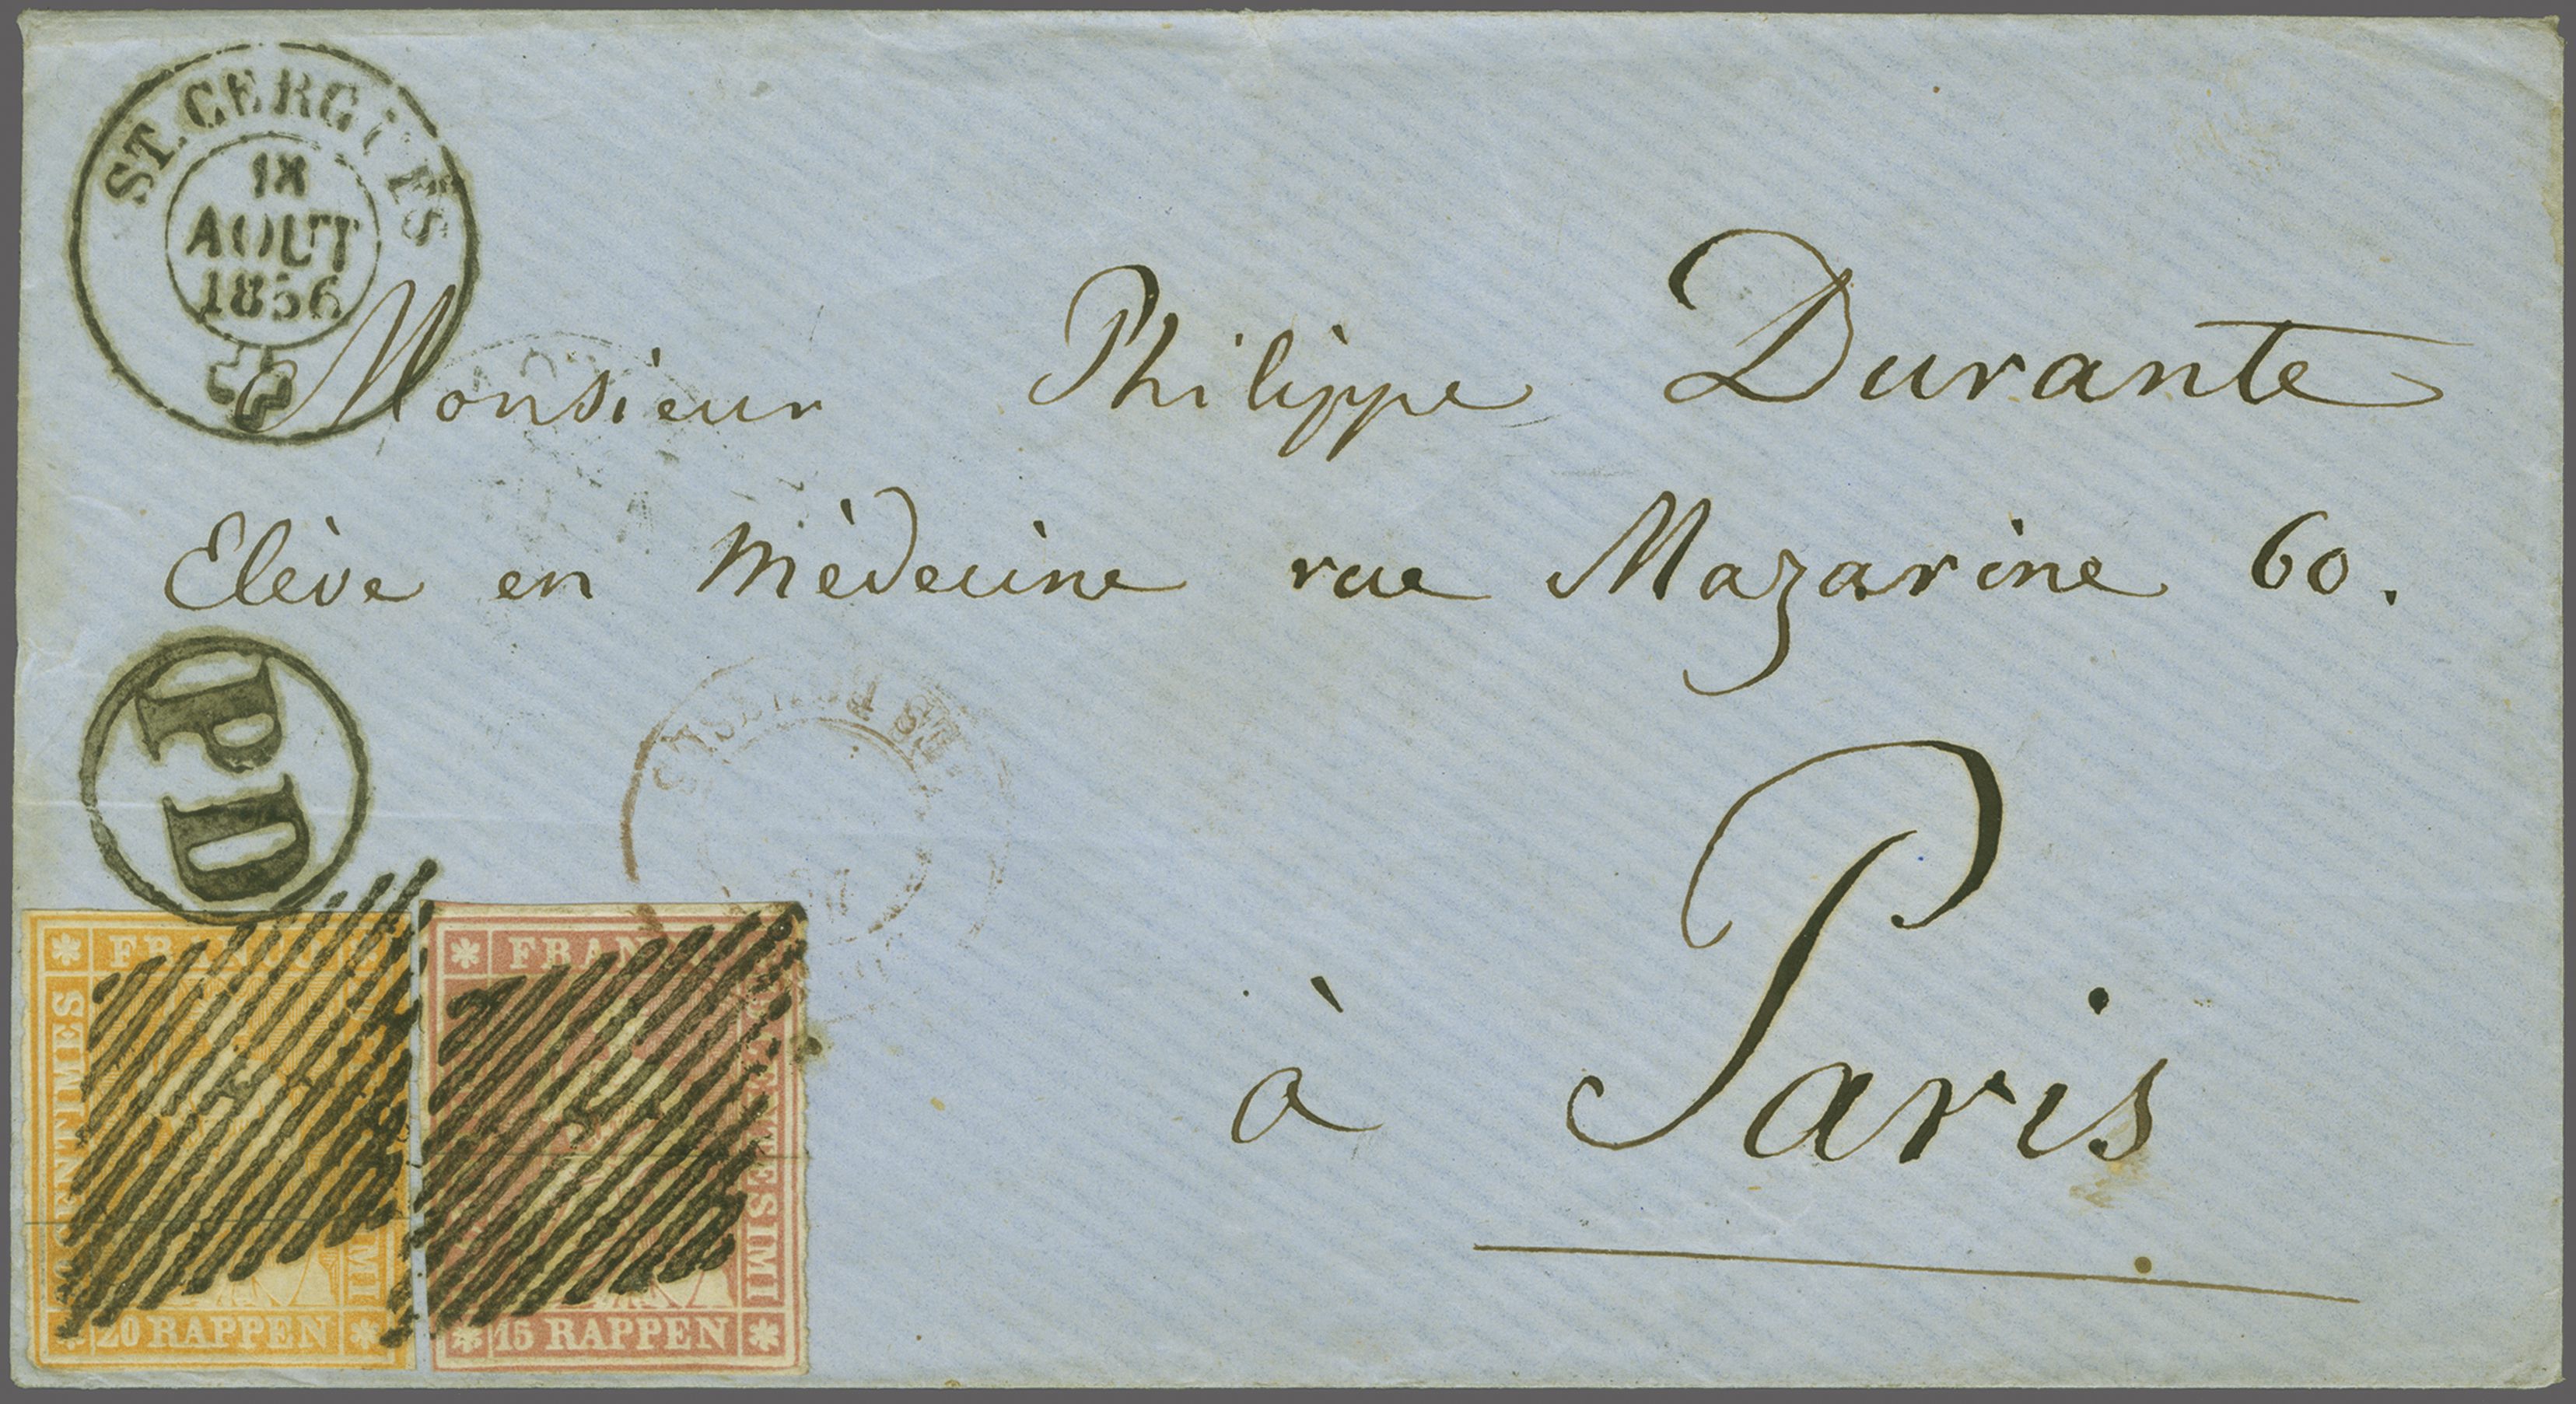 ST. CERGUES
IX
AOUT
1856
Monsieur Philippe Durante
Elève en Mèdecine rue Mazarine 60.
PD
à Paris
FRANCO
FRAN
CENTIMES
CENTESIMI
20 RAPPEN
15 RAPPEN